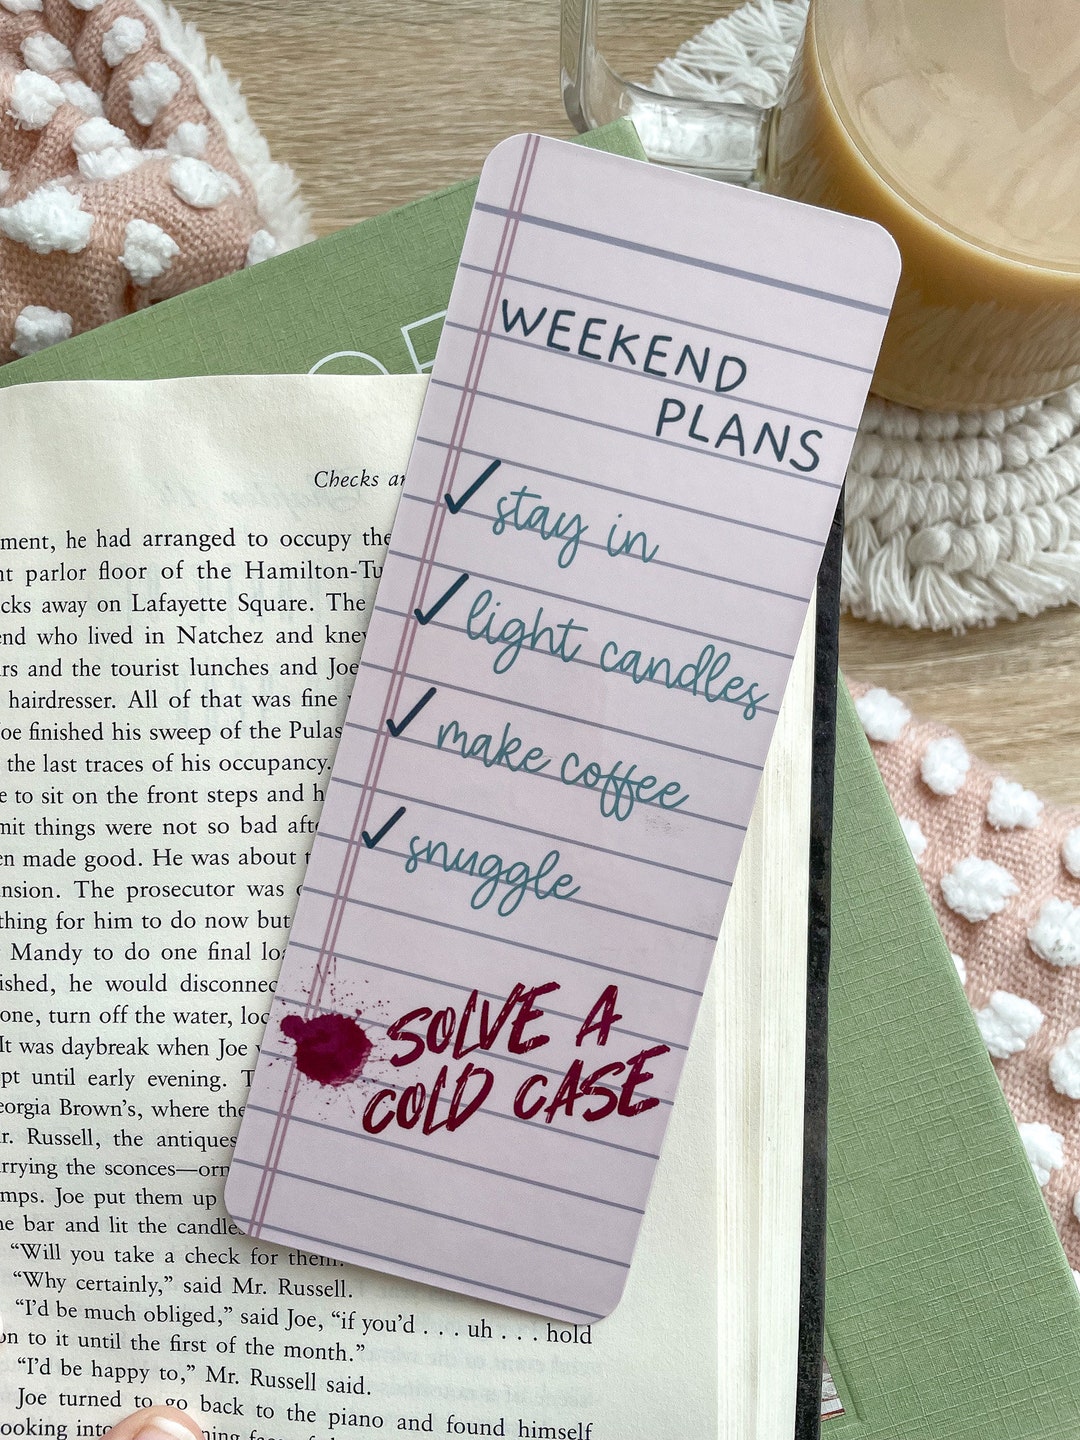 WEEKEND
PLANS
✓ stay in
✓ light candles
✓ make coffee
✓ snuggle
SOLVE A
COLD CASE
Checks
he had arranged to occupy the
parlor floor of the Hamilton-
away on Lafayette Square. The
who lived in Natchez and
and the tourist lunches and Joe
hairdresser. All of that was fine
finished his sweep of the
the last traces of his occupancy.
to sit on the front steps and
things were not so bad
made good. He was about
The prosecutor was
for him to do now but
Mandy to do one final
he would
turn off the water,
It was daybreak when Joe
until early evening.
Brown's, where the
Russell, the antiques
the sconces—
Joe put them up
bar and lit the
“Will you take a check for them.
“Why certainly,” said Mr. Russell.
“I'd be much obliged,” said Joe, “if you'd . . . uh . . . hold
to it until the first of the month.”
“I'd be happy to,” Mr. Russell said.
Joe turned to go back to the piano and found himself